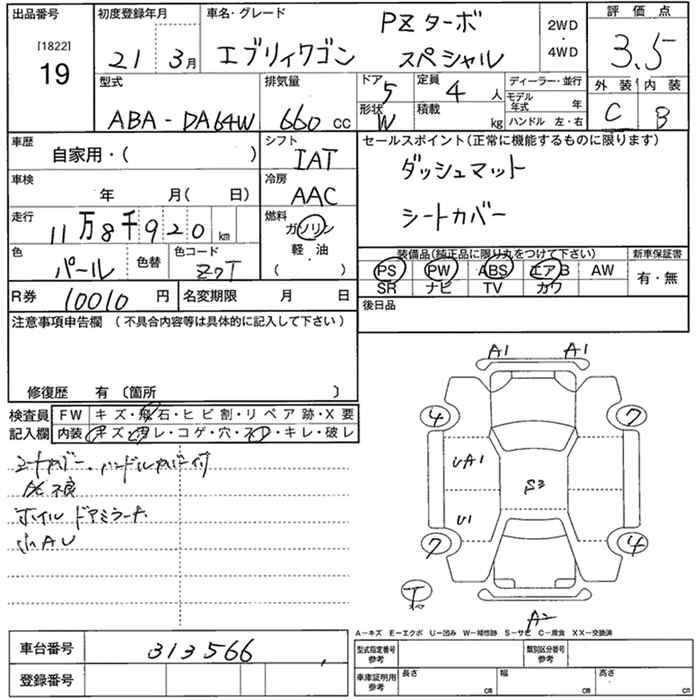 出品番号
[1822]
19
初度登録年月
21 3月
車名・グレード
エブリィワゴン
PZターボ
スペシャル
2WD
・
4WD
評価点
3.5
外装 内装
C B
型式
ABA-DA64W
排気量
660 CC
ドア 5
形状 W
定員 4 人
積載 kg
ディーラー・並行
モデル年式 年
ハンドル 左・右
車歴
自家用・( )
シフト
IAT
セールスポイント(正常に機能するものに限ります)
ダッシュマット
シートカバー
車検
年 月( 日)
冷房
AAC
走行
11万8千920 km
燃料
ガソリン
軽・油
( ・ )
色
パール
色替
色コード
Z7T
装備品(純正品に限り丸をつけて下さい)
PS PW ABS エアB AW
SR ナビ TV カワ
新車保証書
有・無
R券 10010 円
名変期限 月 日
後日品
注意事項申告欄 (不具合内容等は具体的に記入して下さい)
修復歴 有 〔箇所 〕
検査員
記入欄
FW キズ・飛石・ヒビ割・リペア跡・X要
内装 キズ・汚レ・コゲ・穴・ネジ・キレ・破レ
シートカバー、ハンドルカバー付
不良
ホイル ドアミラーA
小AU
A1 A1
4 7
UA1
S3
U1
7 4
T
A2
A-キズ E-エクボ U-凹み W-補修跡 S-サビ C-腐食 XX-交換済
車台番号 313566
登録番号
型式指定番号
参考
類別区分番号
参考
車庫証明用
参考
長さ cm
幅 cm
高さ cm